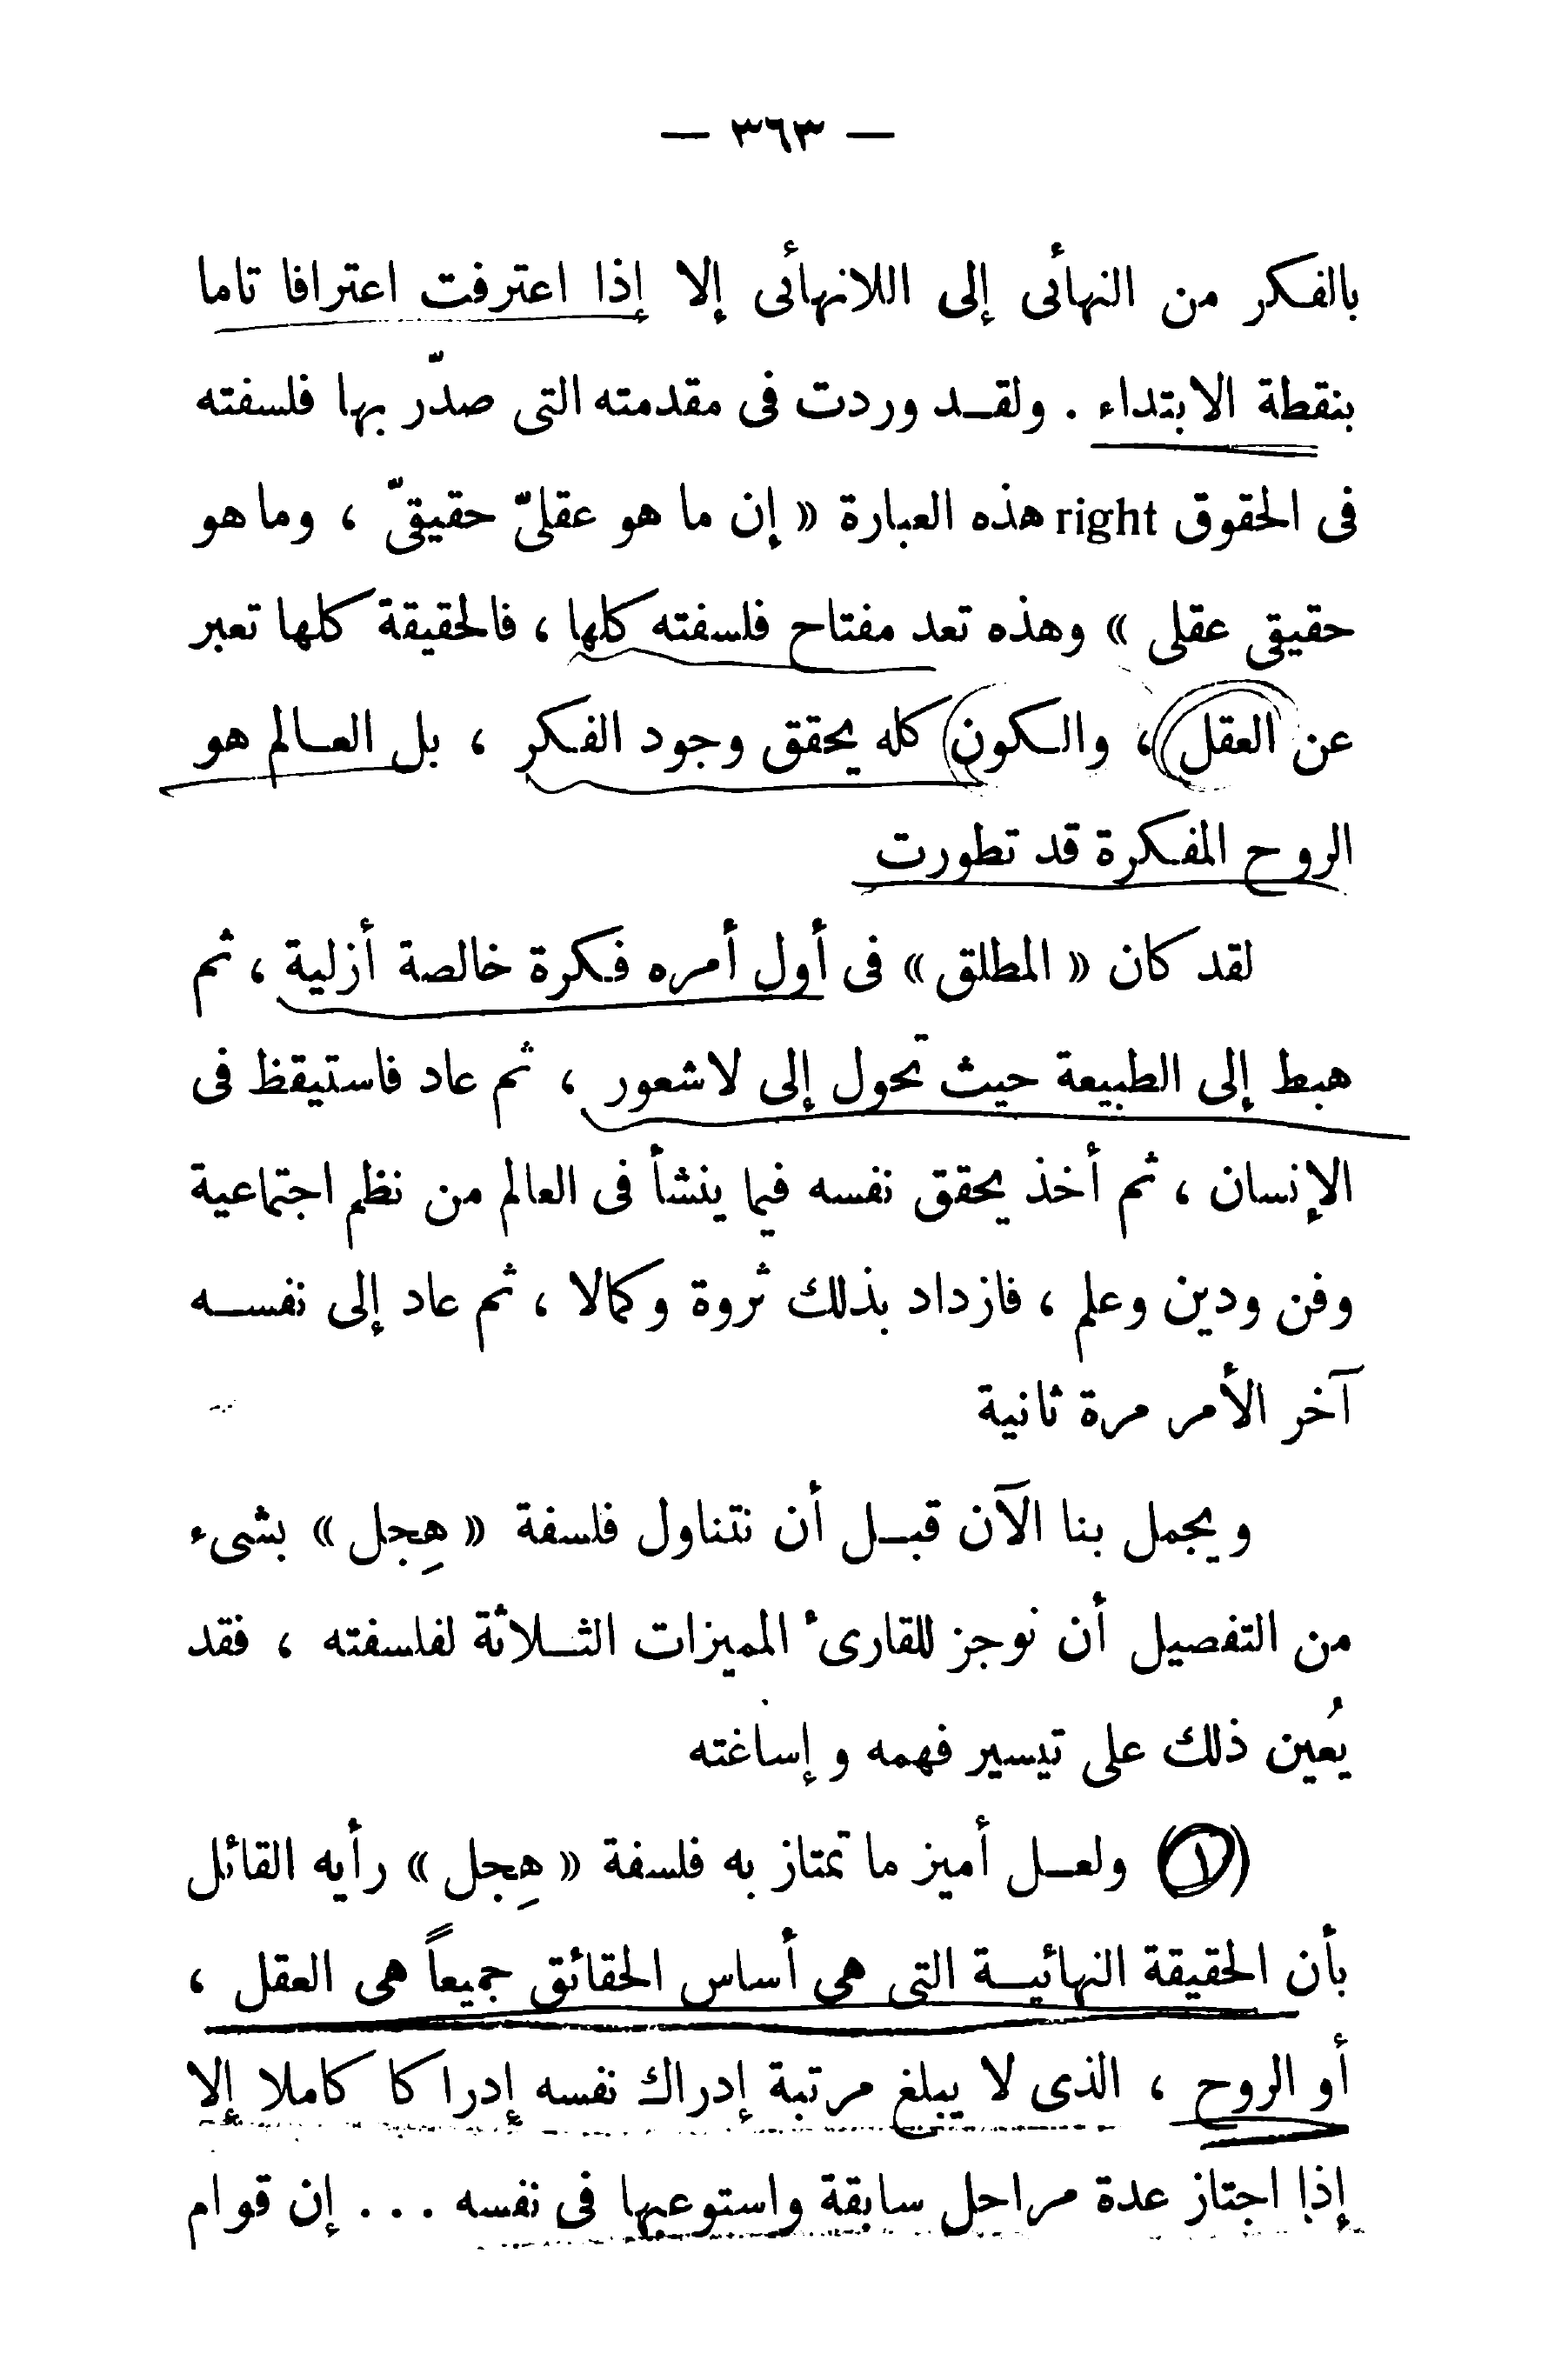 — ٣٦٣ —
بالفكر من النهائى إلى اللانهائى إلا إذا اعترفت اعترافا تاما
بنقطة الابتداء . ولقـد وردت فى مقدمته التى صدّر بها فلسفته
فى الحقوق right هذه العبارة « إن ما هو عقلىّ حقيقىّ ، وما هو
حقيقى عقلى » وهذه تعد مفتاح فلسفته كلها ، فالحقيقة كلها تعبر
عن العقل ، والكون كله يحقق وجود الفكر ، بل العـالم هو
الروح المفكرة قد تطورت
لقد كان « المطلق » فى أول أمره فكرة خالصة أزلية ، ثم
هبط إلى الطبيعة حيث تحول إلى لاشعور ، ثم عاد فاستيقظ فى
الإنسان ، ثم أخذ يحقق نفسه فيما ينشأ فى العالم من نظم اجتماعية
وفن ودين وعلم ، فازداد بذلك ثروة وكمالا ، ثم عاد إلى نفسـه
آخر الأمر مرة ثانية
ويجمل بنا الآن قبـل أن نتناول فلسفة « هِجل » بشىء
من التفصيل أن نوجز للقارىء المميزات الثـلاثة لفلسفته ، فقد
يُعين ذلك على تيسير فهمه وإساغته
(١) ولعـل أميز ما تمتاز به فلسفة « هِجل » رأيه القائل
بأن الحقيقة النهائيـة التى هى أساس الحقائق جميعاً هى العقل ،
أو الروح ، الذى لا يبلغ مرتبة إدراك نفسه إدراكا كاملا إلا
إذا اجتاز عدة مراحل سابقة واستوعبها فى نفسه . . . إن قوام